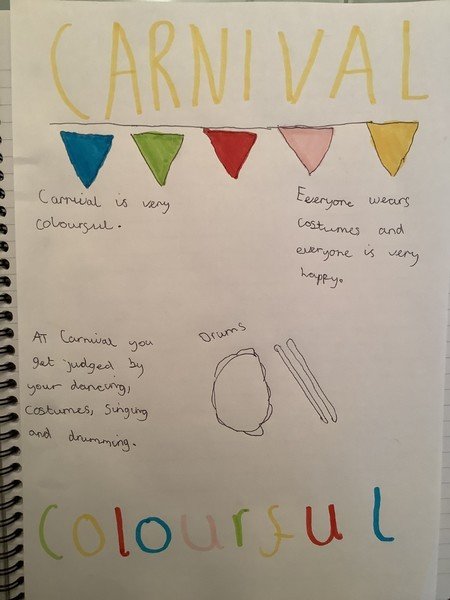 CARNIVAL
Carnival is very
colourful.
Eeveryone wears
costumes and
everyone is very
happy.
AT Carnival you
get judged by
your dancing,
costumes, singing
and drumming.
Drums
colourful